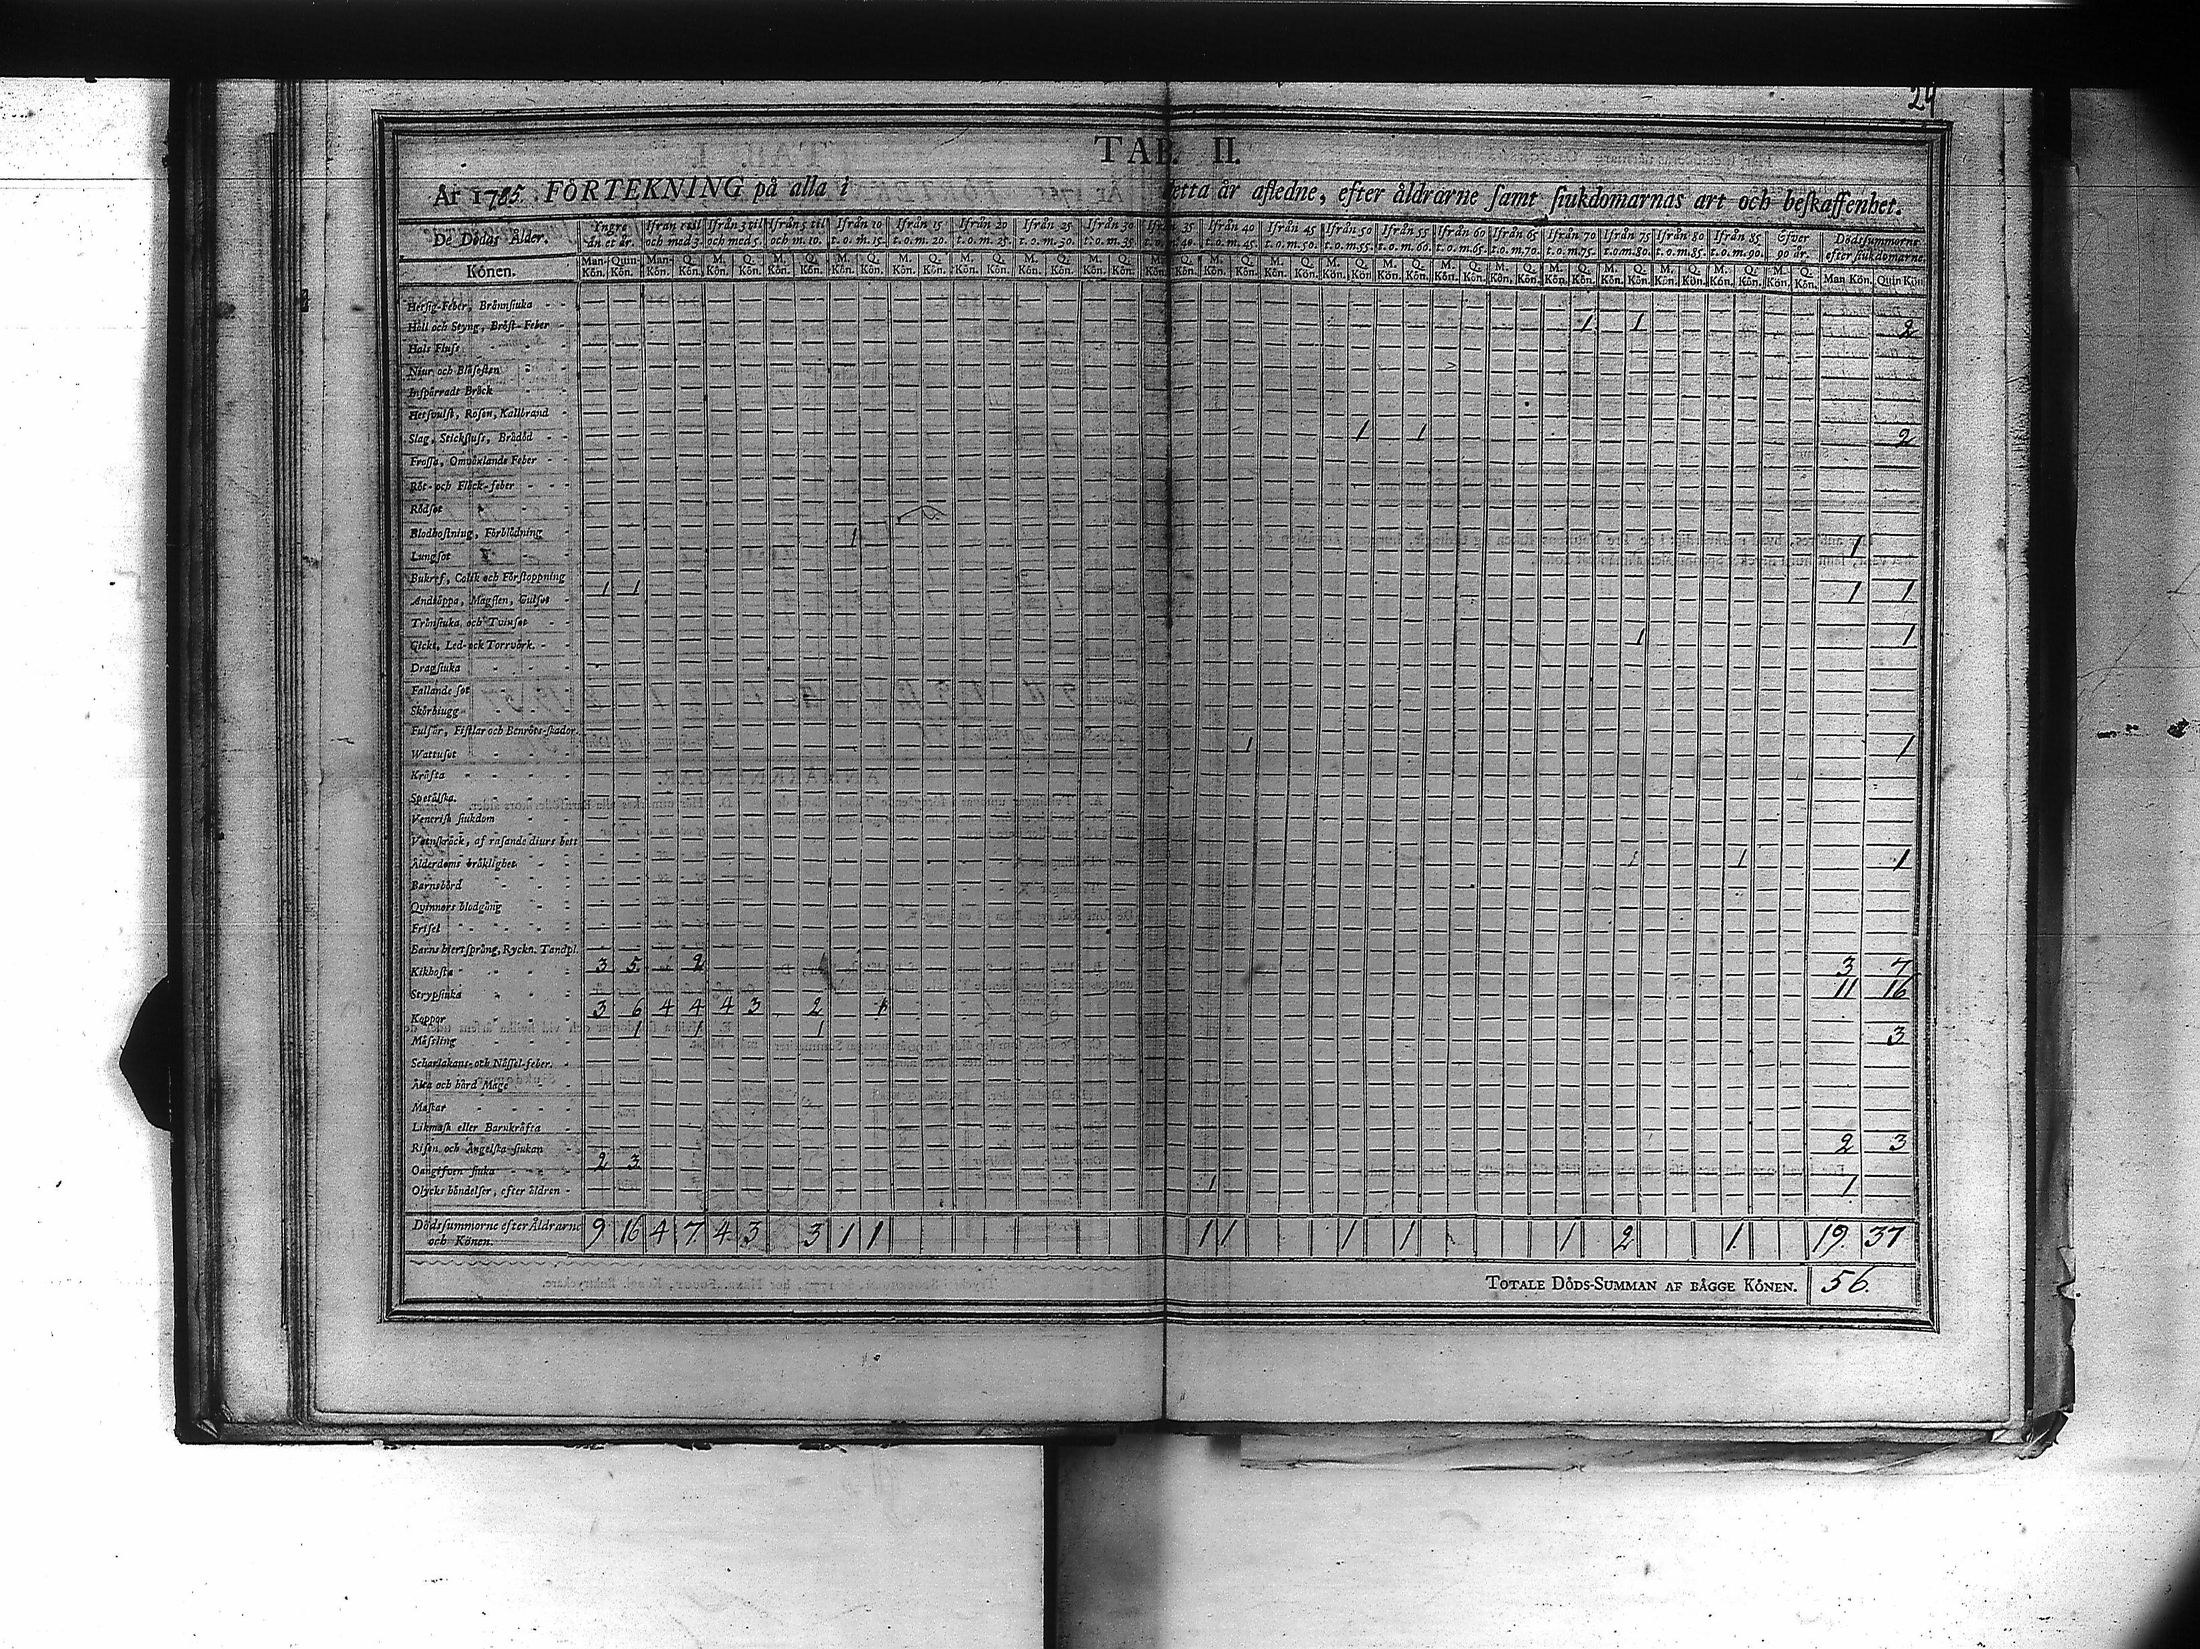 24
TAB. II.
År 1785. FÖRTEKNING på alla i detta år afledne, efter åldrarne samt siukdomarnas art och beskaffenhet.
De Dödas Ålder. Yngre än et år. Ifrån 1 til och med 3. Ifrån 3 til och med 5. Ifrån 5 til och m. 10. Ifrån 10 t. o. m. 15. Ifrån 15 t. o. m. 20. Ifrån 20 t. o. m. 25. Ifrån 25 t. o. m. 30. Ifrån 30 t. o. m. 35 Ifrån 35 t. o. m. 40. Ifrån 40 t. o. m. 45. Ifrån 45 t. o. m. 50. Ifrån 50 t. o. m. 55. Ifrån 55 t. o. m. 60. Ifrån 60 t. o. m. 65. Ifrån 65 t. o. m. 70. Ifrån 70 t. o. m. 75. Ifrån 75 t. o. m. 80. Ifrån 80 t. o. m. 85. Ifrån 85 t. o. m. 90. Efver 90 år. Dödssummorne efter siukdomarne
Könen. Man-Kön. Quin-Kön. Man-Kön. Q. Kön. M. Kön. Q. Kön. M. Kön. Q. Kön. M. Kön. Q. Kön. M. Kön. Q. Kön. M. Kön. Q. Kön. M. Kön. Q. Kön. M. Kön. Q. Kön. M. Kön. Q. Kön. M. Kön. Q. Kön. M. Kön. Q. Kön. M. Kön. Q. Kön. M. Kön. Q. Kön. M. Kön. Q. Kön. M. Kön. Q. Kön. M. Kön. Q. Kön. M. Kön. Q. Kön. M. Kön. Q. Kön. M. Kön. Q. Kön. M. Kön. Q. Kön. Man Kön. Quin Kön
Hetsig-Feber, Brännsiuka
Håll och Styng, Bröst-Feber 1 1 2
Hals Fluss
Niur och Blåsesten
Inspärradt Bråck
Hetsvulst, Rosen, Kallbrand
Slag, Stickfluss, Brådöd 1 1 2
Frossa, Omväxlande Feber
Röt- och Fläck-feber
Rödsot
Blodhostning, Förblödning 1
Lungsot 1
Bukref, Colik och Förstoppning
Andtäppa, Magsten, Gulsot 1 1 1 1
Trånsiuka och Tvinsot
Gickt, Led- ock Torrvärk. 1 1
Dragsiuka
Fallande sot
Skörbiugg
Fulsår, Fistlar och Benröts-skador.
Wattusot 1 1
Kräfta
Spetälska.
Venerisk siukdom
Vatnskräck, af rasande diurs bett
Ålderdoms bräklighet 1 1 1
Barnsbörd
Qvinnors blodgång
Frisel
Barns hiertsprång, Ryckn. Tandpl.
Kikhosta 3 5 2 3 7
Strypsiuka 11 16
Koppor 3 6 4 4 4 3 2 1
Mässling 1 1 1 3
Scharlakans- och Nässel-feber.
Älta och hård Mage
Maskar
Likmask eller Barnkräfta
Risen och Ängelska siukan 2 3
Oangifven siuka 2 3
Olycks händelser, efter åldren 1 1
Dödssummorne efter Åldrarne och Könen. 9 16 4 7 4 3 3 1 1 1 1 1 1 1 2 1. 19. 37
TOTALE DÖDS-SUMMAN AF BÅGGE KÖNEN. 56.